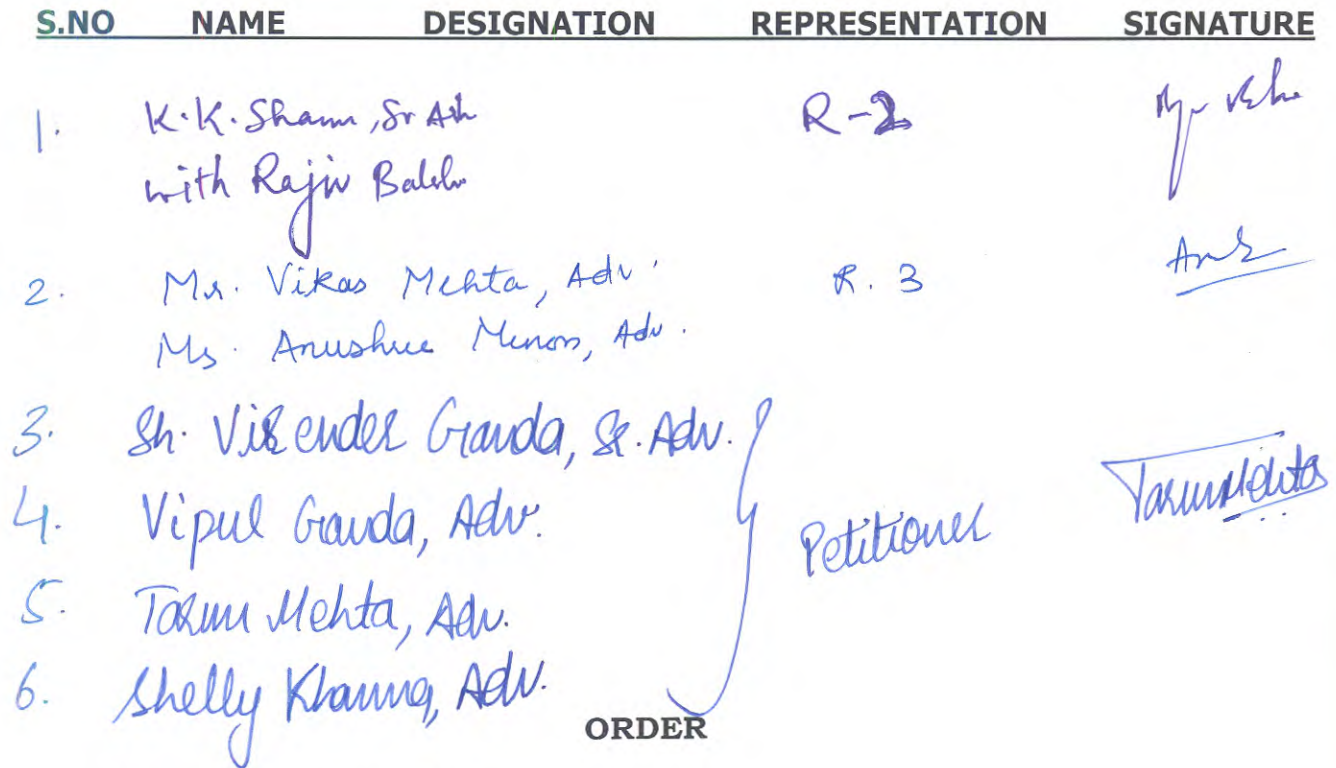 S.NO NAME DESIGNATION REPRESENTATION SIGNATURE
1. K.K. Sham, Sr R-2
with Rajiv
2. Mr. Vikas Mehta, Adv. R. 3
Ms. Anushree Menon, Adv.
3. Sh. Virender Ganda, Sr. Adv.
4. Vipul Ganda, Adv. Petitioner Tarun Mehta
5. Tarun Mehta, Adv.
6. Shelly Khanna, Adv.
ORDER